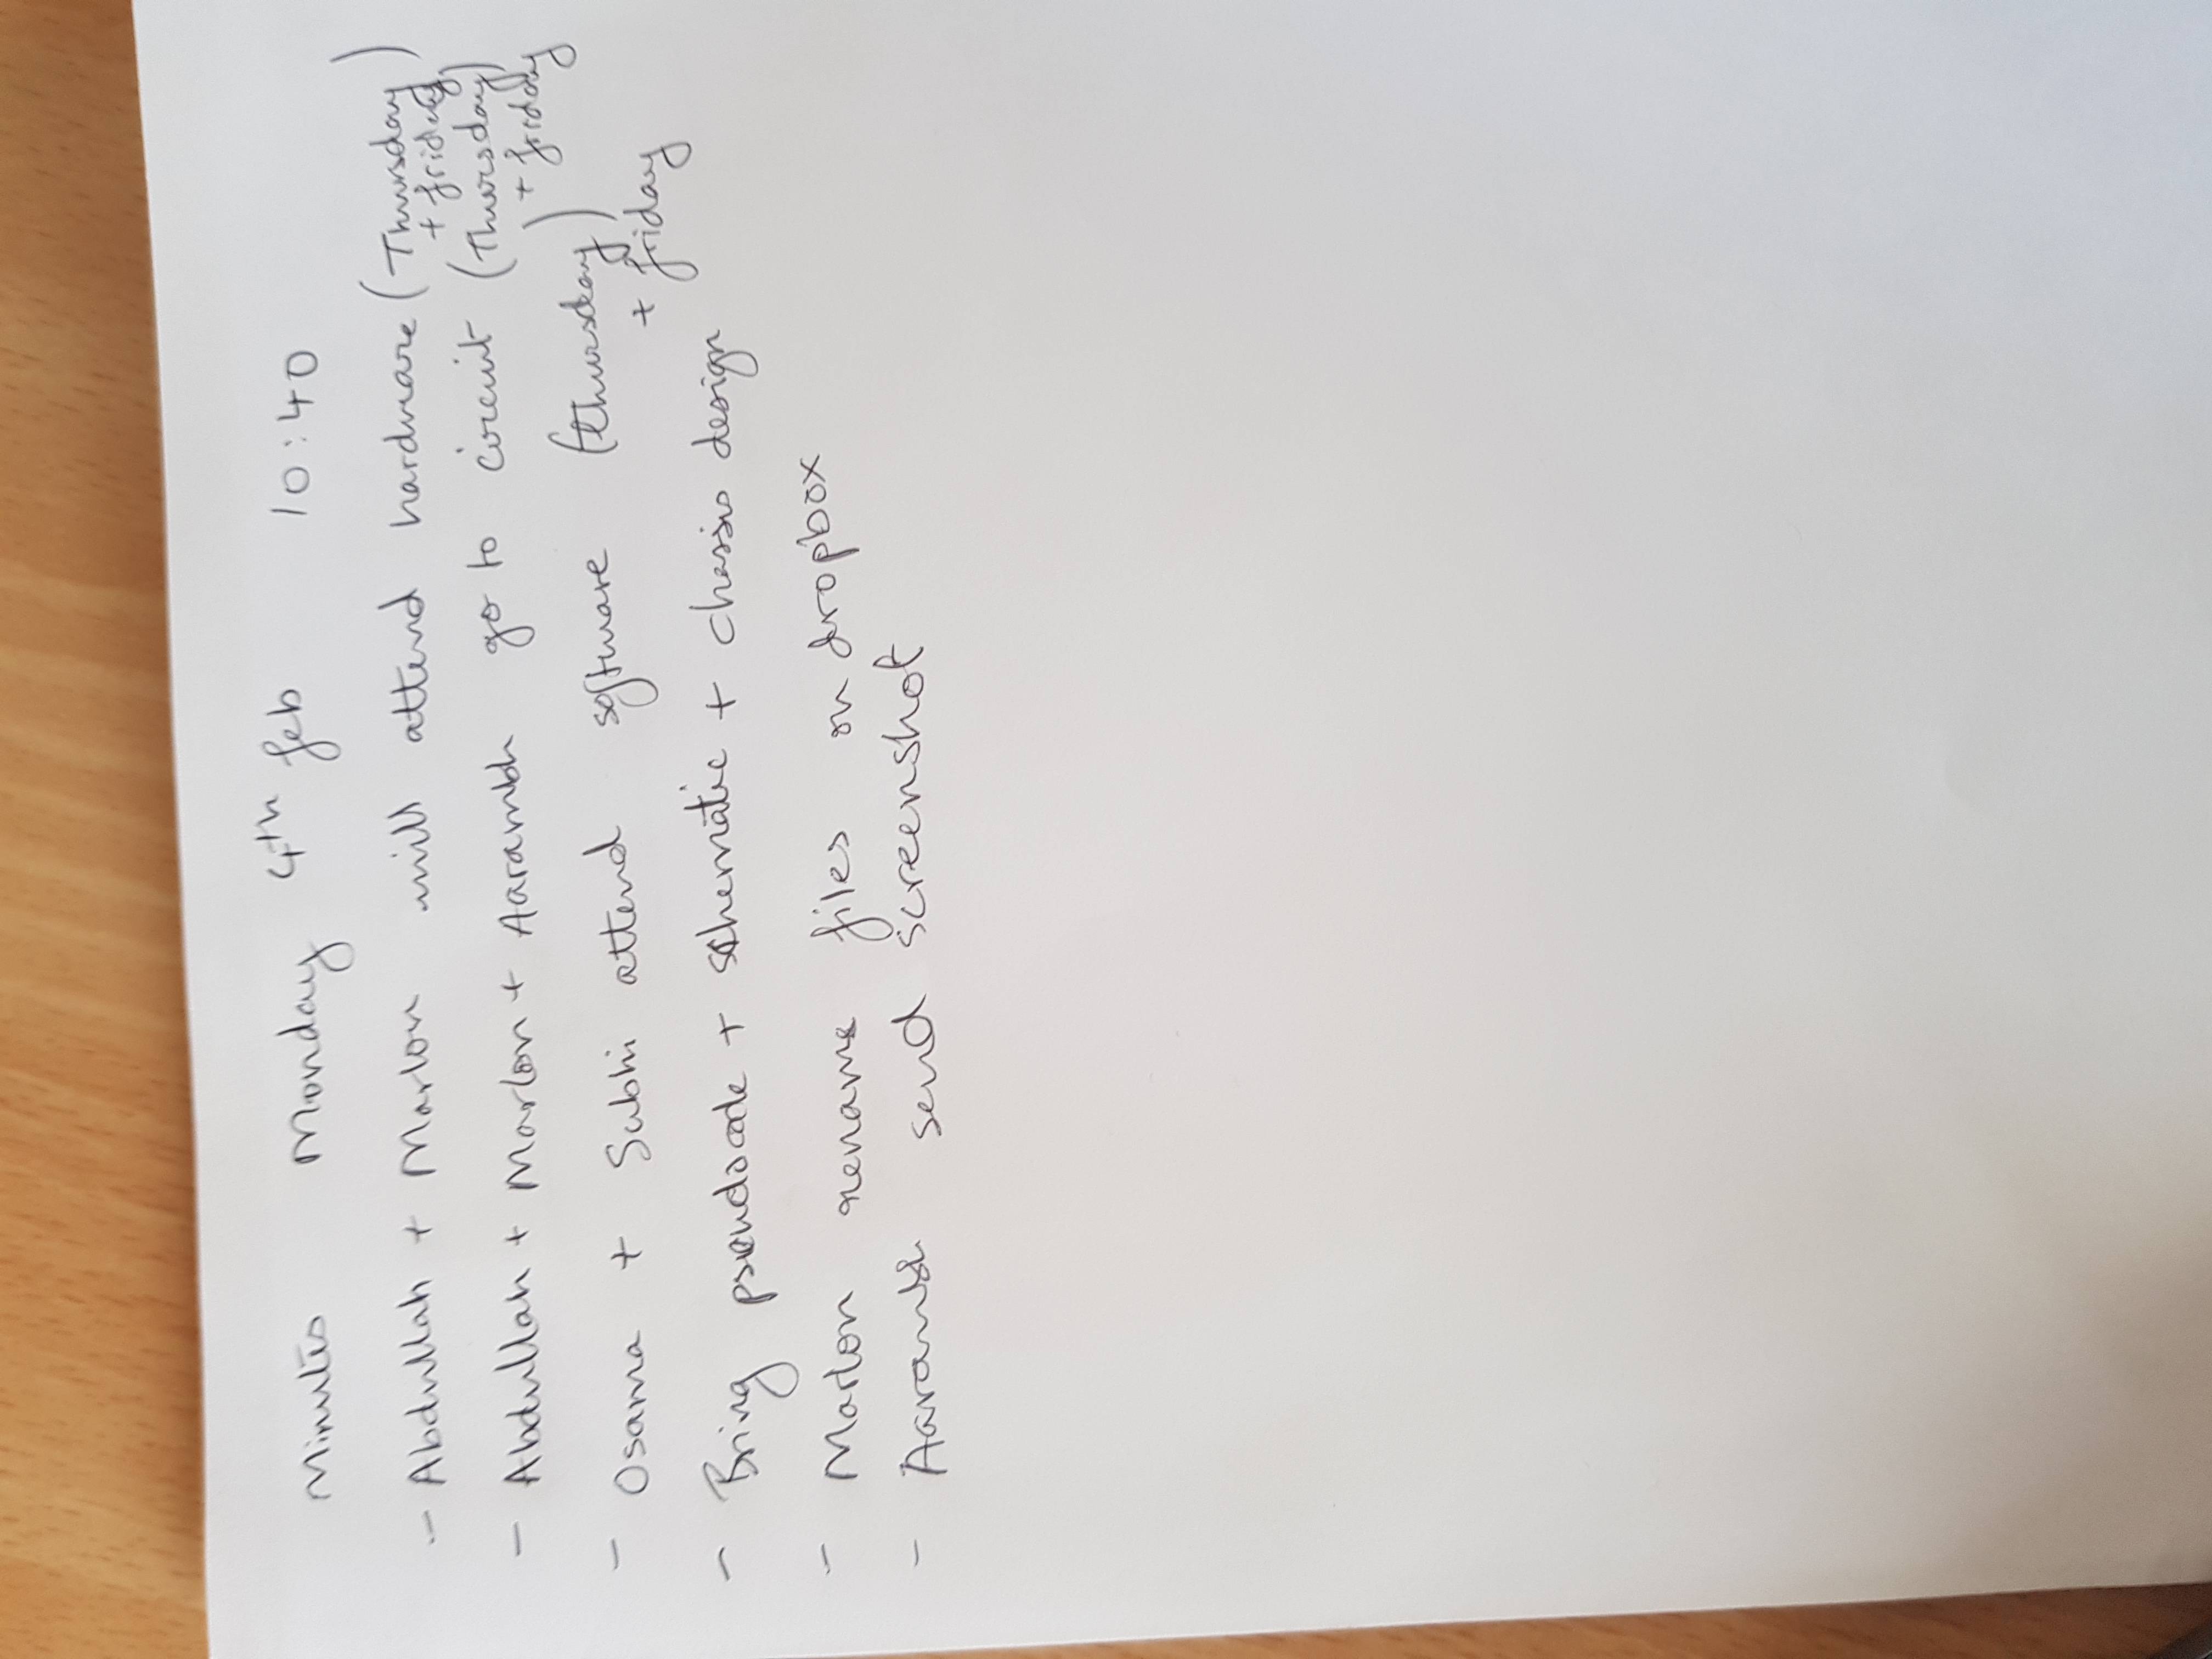 Minutes Monday 4th feb 10:40
- Abdullah + Marlon will attend hardware (Thursday)
+ friday
- Abdullah + Marlon + Aarambh go to circuit (Thursday)
+ friday
- Osama + Subhi attend software (thursday)
+ friday
- Bring pseudocode + schematic + chassis design
- Marlon rename files on dropbox
- Aarambh send screenshot